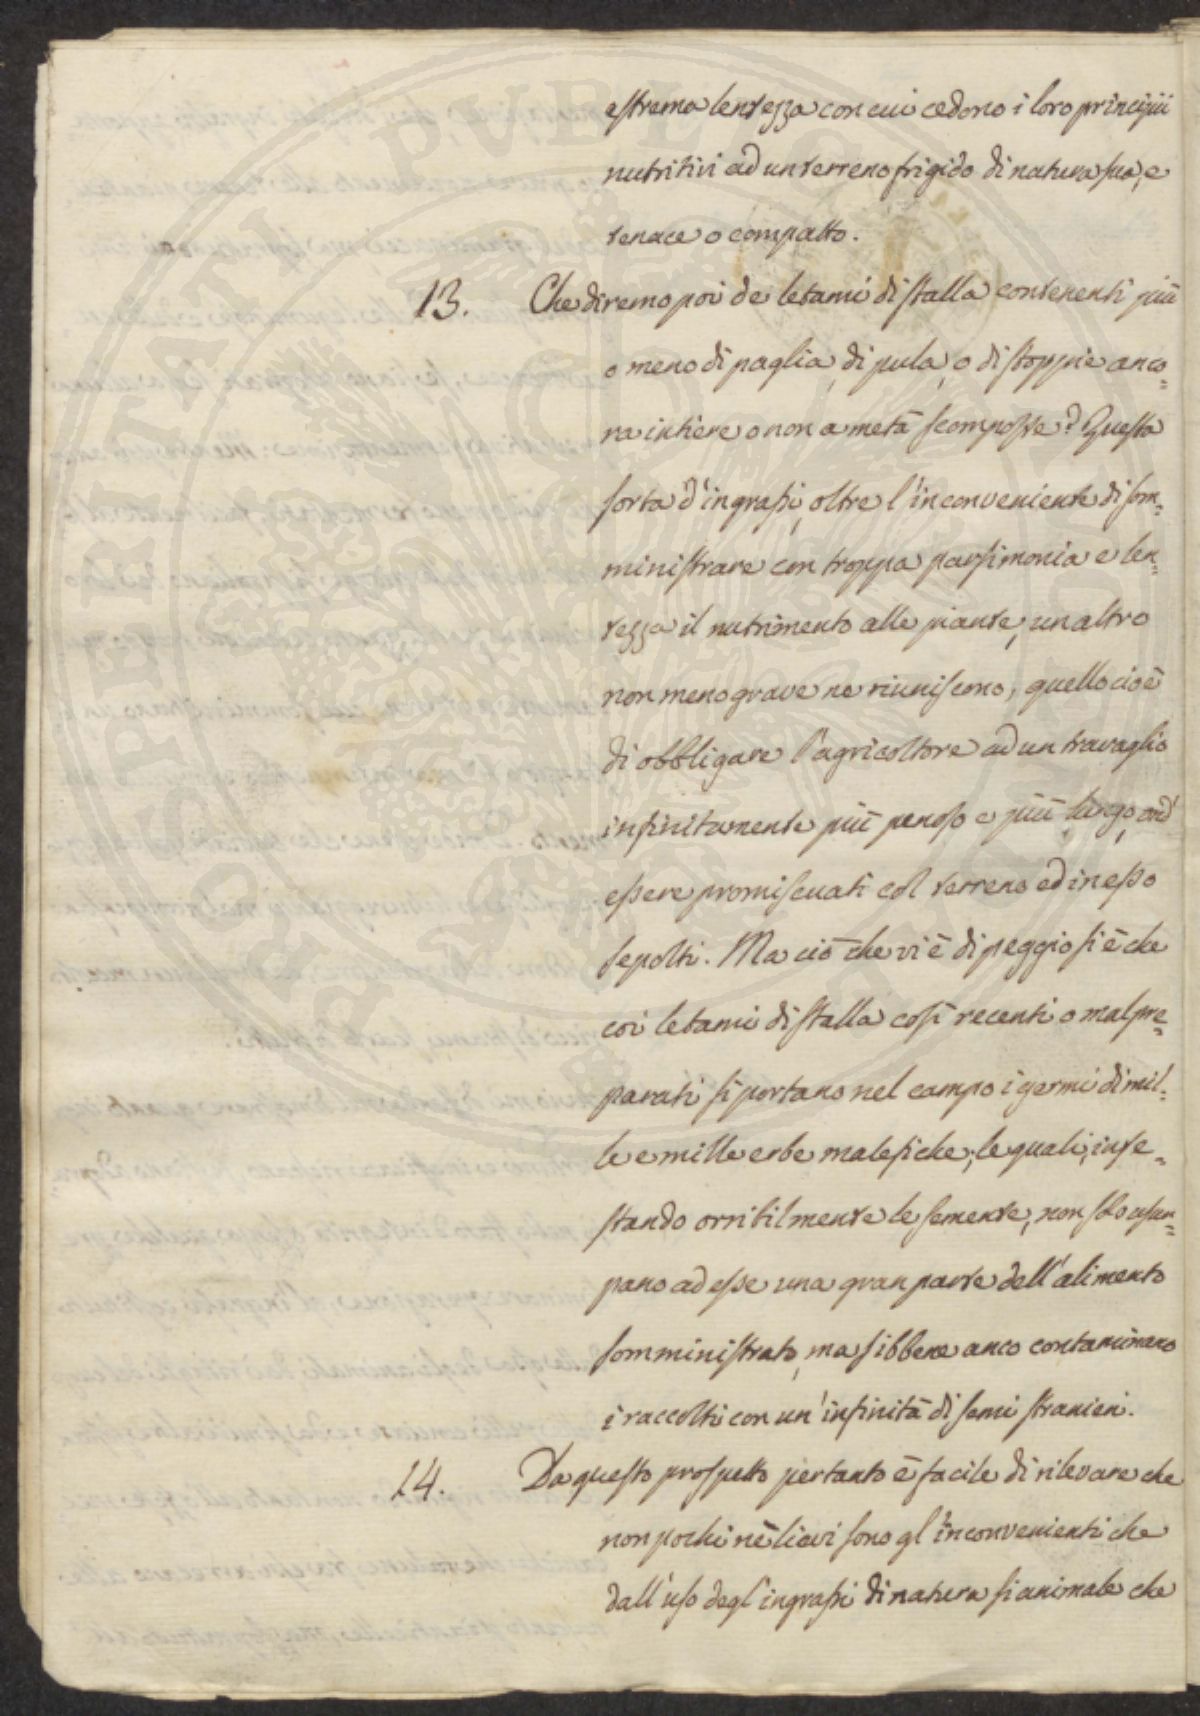 estrema lentezza con cui cedono i loro principii
nutritivi ad un terreno frigido di natura sua, e
tenace o compatto.
13. Che diremo poi de letami di stalla contenenti più
o meno di paglia, di pula, o di stoppie anco=
ra intiere o non a metà scomposte? Questa
sorta d'ingrassi, oltre l'inconveniente di som=
ministrare con troppa parsimonia e len=
tezza il nutrimento alle piante, un altro
non meno grave ne riuniscono, quello cioè
di obbligare l'agricoltore ad un travaglio
infinitamente più penoso e più lungo, ond'
essere promiscuati col terreno ed in esso
sepolti. Ma ciò che vi è di peggio si è che
coi letami di stalla così recenti o mal pre=
parati si portano nel campo i germi di mil=
le e mille erbe malefiche, le quali, infe=
stando orribilmente le semente, non solo usur=
pano ad esse una gran parte dell'alimento
somministrato, ma sibbene anco contaminano
i raccolti con un'infinità di semi stranieri.
14. Da questo prospetto pertanto è facile di rilevare che
non pochi nè lievi sono gl'inconvenienti che
dall'uso degl'ingrassi di natura sì animale che